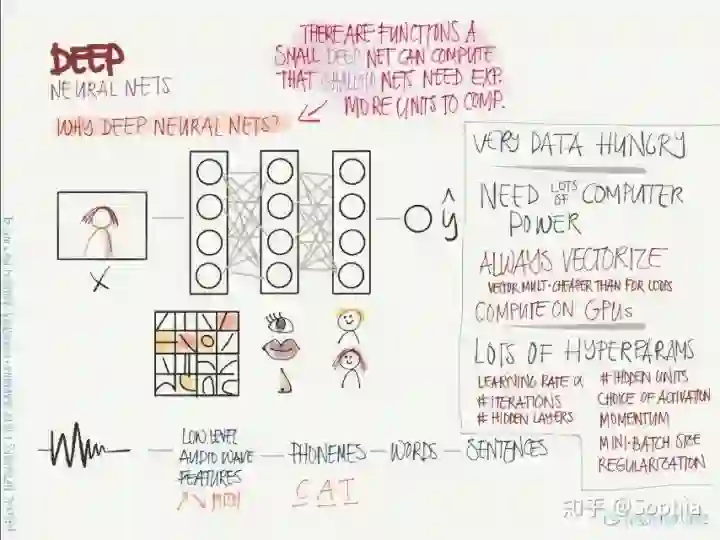 DEEP
NEURAL NETS
WHY DEEP NEURAL NETS?
THERE ARE FUNCTIONS A
SMALL DEEP NET CAN COMPUTE
THAT SHALLOW NETS NEED EXP.
MORE UNITS TO COMP.
X
ŷ
LOW LEVEL
AUDIO WAVE
FEATURES
PITCH
PHONEMES
C A T
WORDS
SENTENCES
VERY DATA HUNGRY
NEED LOTS OF COMPUTER
POWER
ALWAYS VECTORIZE
VECTOR MULT. CHEAPER THAN FOR LOOPS
COMPUTE ON GPUs
LOTS OF HYPERPARAMS
LEARNING RATE α
# ITERATIONS
# HIDDEN LAYERS
# HIDDEN UNITS
CHOICE OF ACTIVATION
MOMENTUM
MINI-BATCH SIZE
REGULARIZATION
知乎 @Sophia